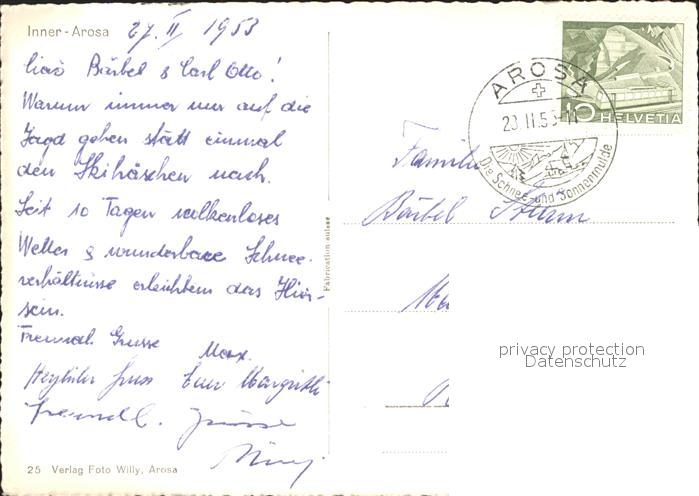 Inner - Arosa 27. II 1953
Ciao Bärbel & Carl Otto!
Warum immer nur auf die
Jagd gehen statt einmal
den Skihäschen nach.
Seit 10 Tagen wolkenloses
Wetter & wunderbare Schnee-
verhältnisse erleichtern das Hier-
sein.
Freundl. Grüsse
Max.
Herzlichen Gruss Euer Margritli
freundl. Grüsse
25 Verlag Foto Willy, Arosa
Fabrication suisse
HELVETIA
10
AROSA
II.53
Die Schnee- und Sonnenmulde
Familie
Bärbel Sturm
privacy protection
Datenschutz